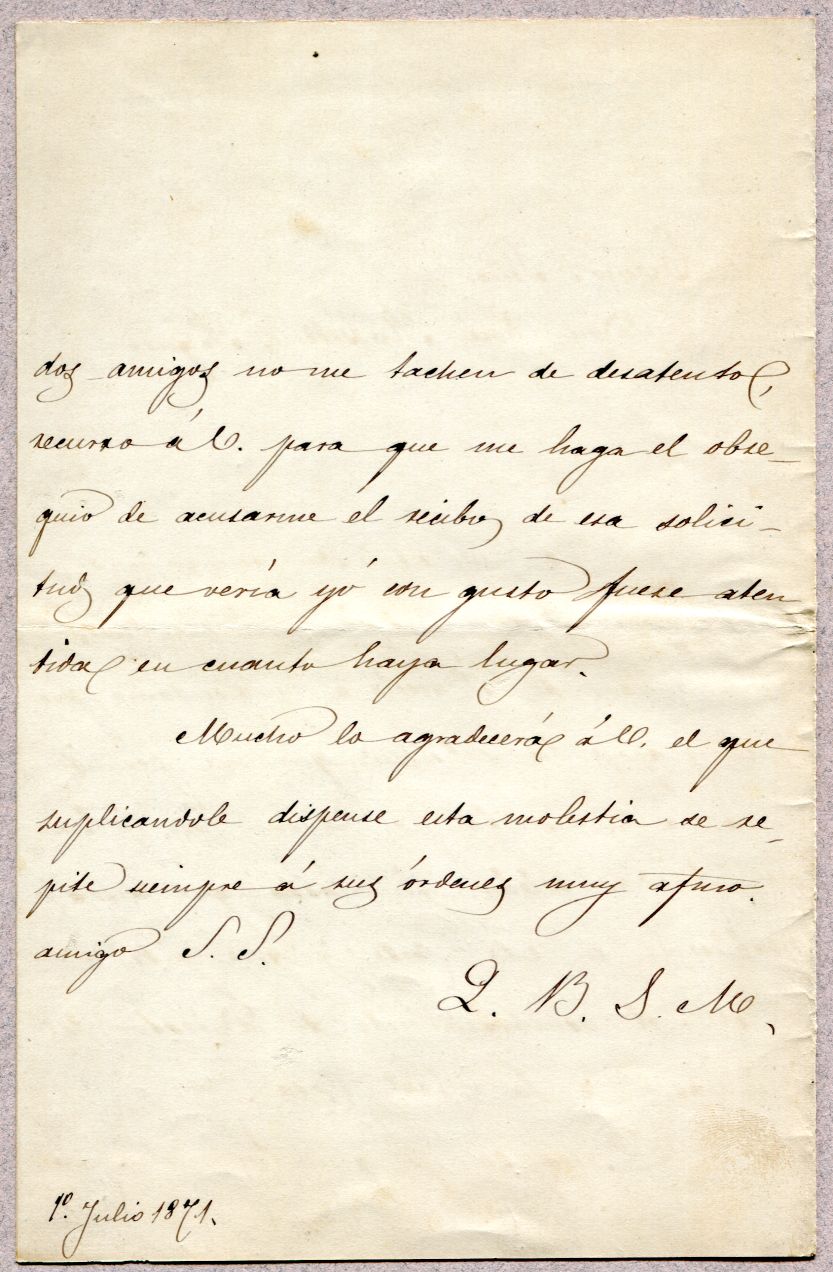 dos amigos no me tachen de desatento,
recurro á V. para que me haga el obse-
quio de acusarme el recibo de esa solici-
tud que vería yó con gusto fuese aten
tida en cuanto haya lugar.
Mucho lo agradecerá á V. el que
suplicandole dispense esta molestia se re-
pite siempre á sus órdenes muy afmo.
amigo S. S.
Q. B. S. M.
1º. Julio 1871.